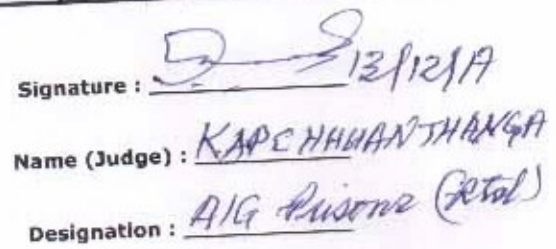 Signature : 13/12/17
Name (Judge) : KAPCHHUANTHANGA
Designation : AIG Prisons (Retd)